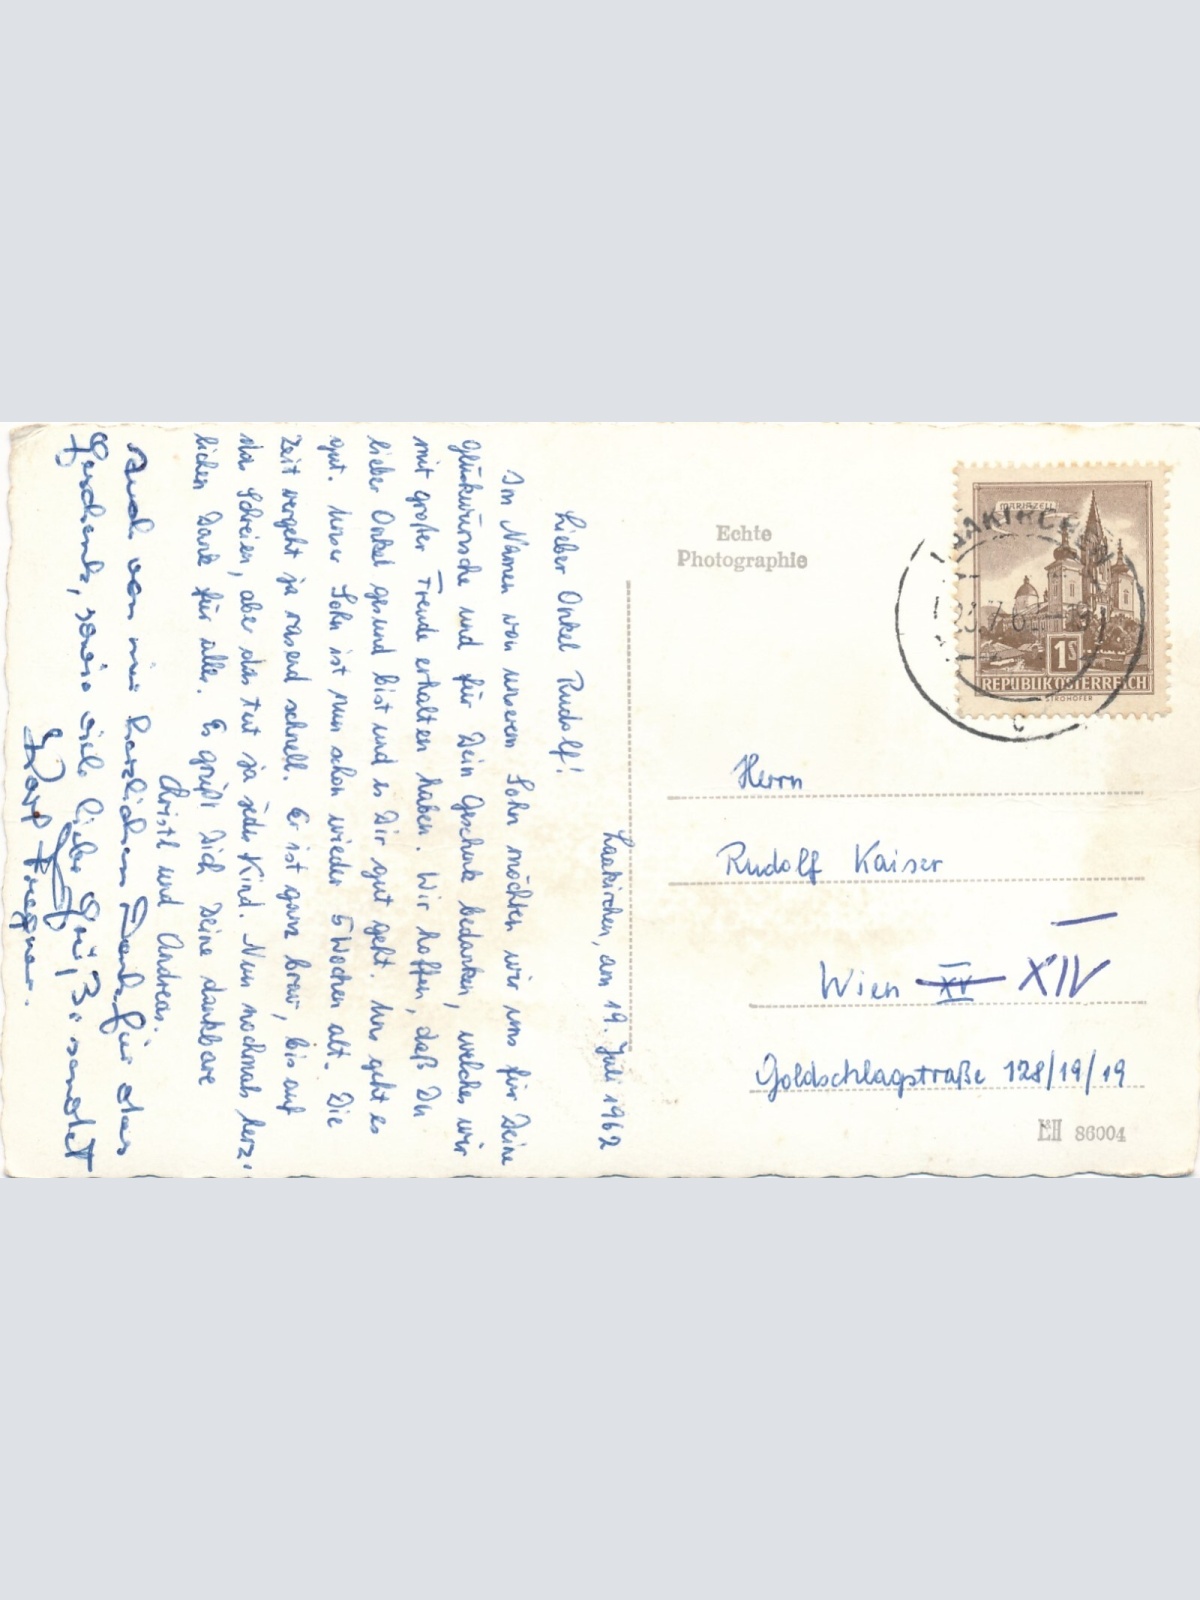 Laakirchen, am 19. Juli 1962
Lieber Onkel Rudolf!
Im Namen von unserem Sohn möchten wir uns für Deine
Glückwünsche und für Dein Geschenk bedanken, welches wir
mit großer Freude erhalten haben. Wir hoffen, daß Du
lieber Onkel gesund bist und es Dir gut geht. Uns geht es
gut. Unser Sohn ist nun schon wieder 5 Wochen alt. Die
Zeit vergeht ja rasend schnell. Er ist ganz brav, bis auf
das Schreien, aber das tut ja jedes Kind. Nun nochmals herz-
lichen Dank für alles. Es grüßt Dich Deine dankbare
Christl und Andreas.
Auch von mir herzlichen Dank für das
Geschenk, sowie viele liebe Grüße sendet
Karl
Echte
Photographie
MARIAZELL
LAAKIRCHEN
1S
REPUBLIK ÖSTERREICH
STROHOFER
c
Herrn
Rudolf Kaiser
Wien XV XIV
Goldschlagstraße 128/19/19
86004